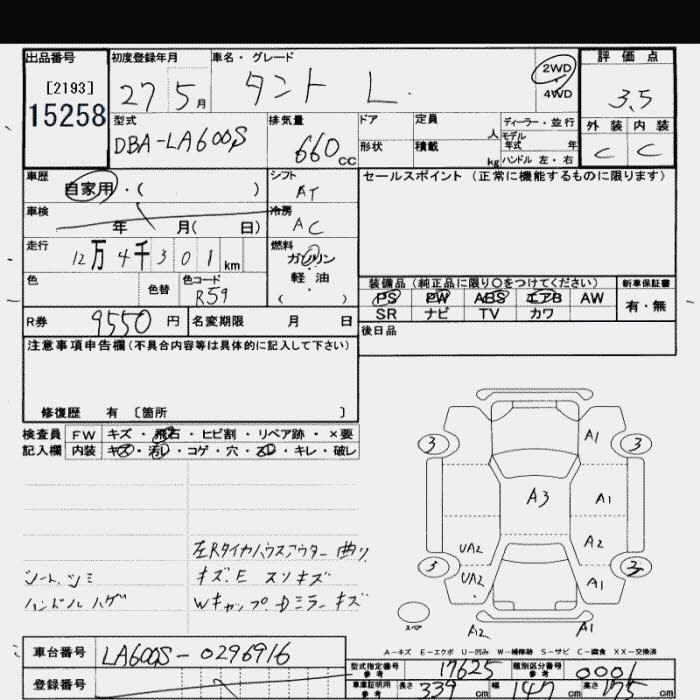 出品番号 初度登録年月 車名・グレード 評価点
[2193] 27 5月 タント L. 2WD・4WD 3.5
15258
型式 排気量 ドア 定員 人 ディーラー・並行 外装 内装
DBA-LA600S 660cc 形状 積載 kg モデル年式 年 C C
ハンドル 左・右
車歴 自家用・( ) シフト AT セールスポイント (正常に機能するものに限ります)
車検 年 月( 日) 冷房 AC
走行 12万4千301km 燃料 ガソリン
軽・油
( )
色 色替 色コード R59
装備品 (純正品に限り〇をつけてください) 新車保証書
PS PW ABS エアB AW 有・無
SR ナビ TV カワ
R券 9550円 名変期限 月 日 後日品
注意事項申告欄(不具合内容等は具体的に記入して下さい)
修復歴 有 〔箇所 〕
検査員 FW キズ・飛石・ヒビ割・リペア跡・×要
記入欄 内装 キズ・汚レ・コゲ・穴・スレ・キレ・破レ
3 A1 3
A3 A1
A2
UA2
3 UA2 A1 3
スペア A2 A1
左Rタイヤハウスアウター曲り
シート、シミ キズ.E スリキズ
ハンドルハゲ Wキャップ.Dミラーキズ
A-キズ E-エクボ U-凹み W-補修跡 S-サビ C-腐食 XX-交換済
車台番号 LA600S-0296916
登録番号
型式指定番号 参考 17625 類別区分番号 参考 0001
車庫証明用 参考 長さ 339cm 幅 147cm 高さ 175cm